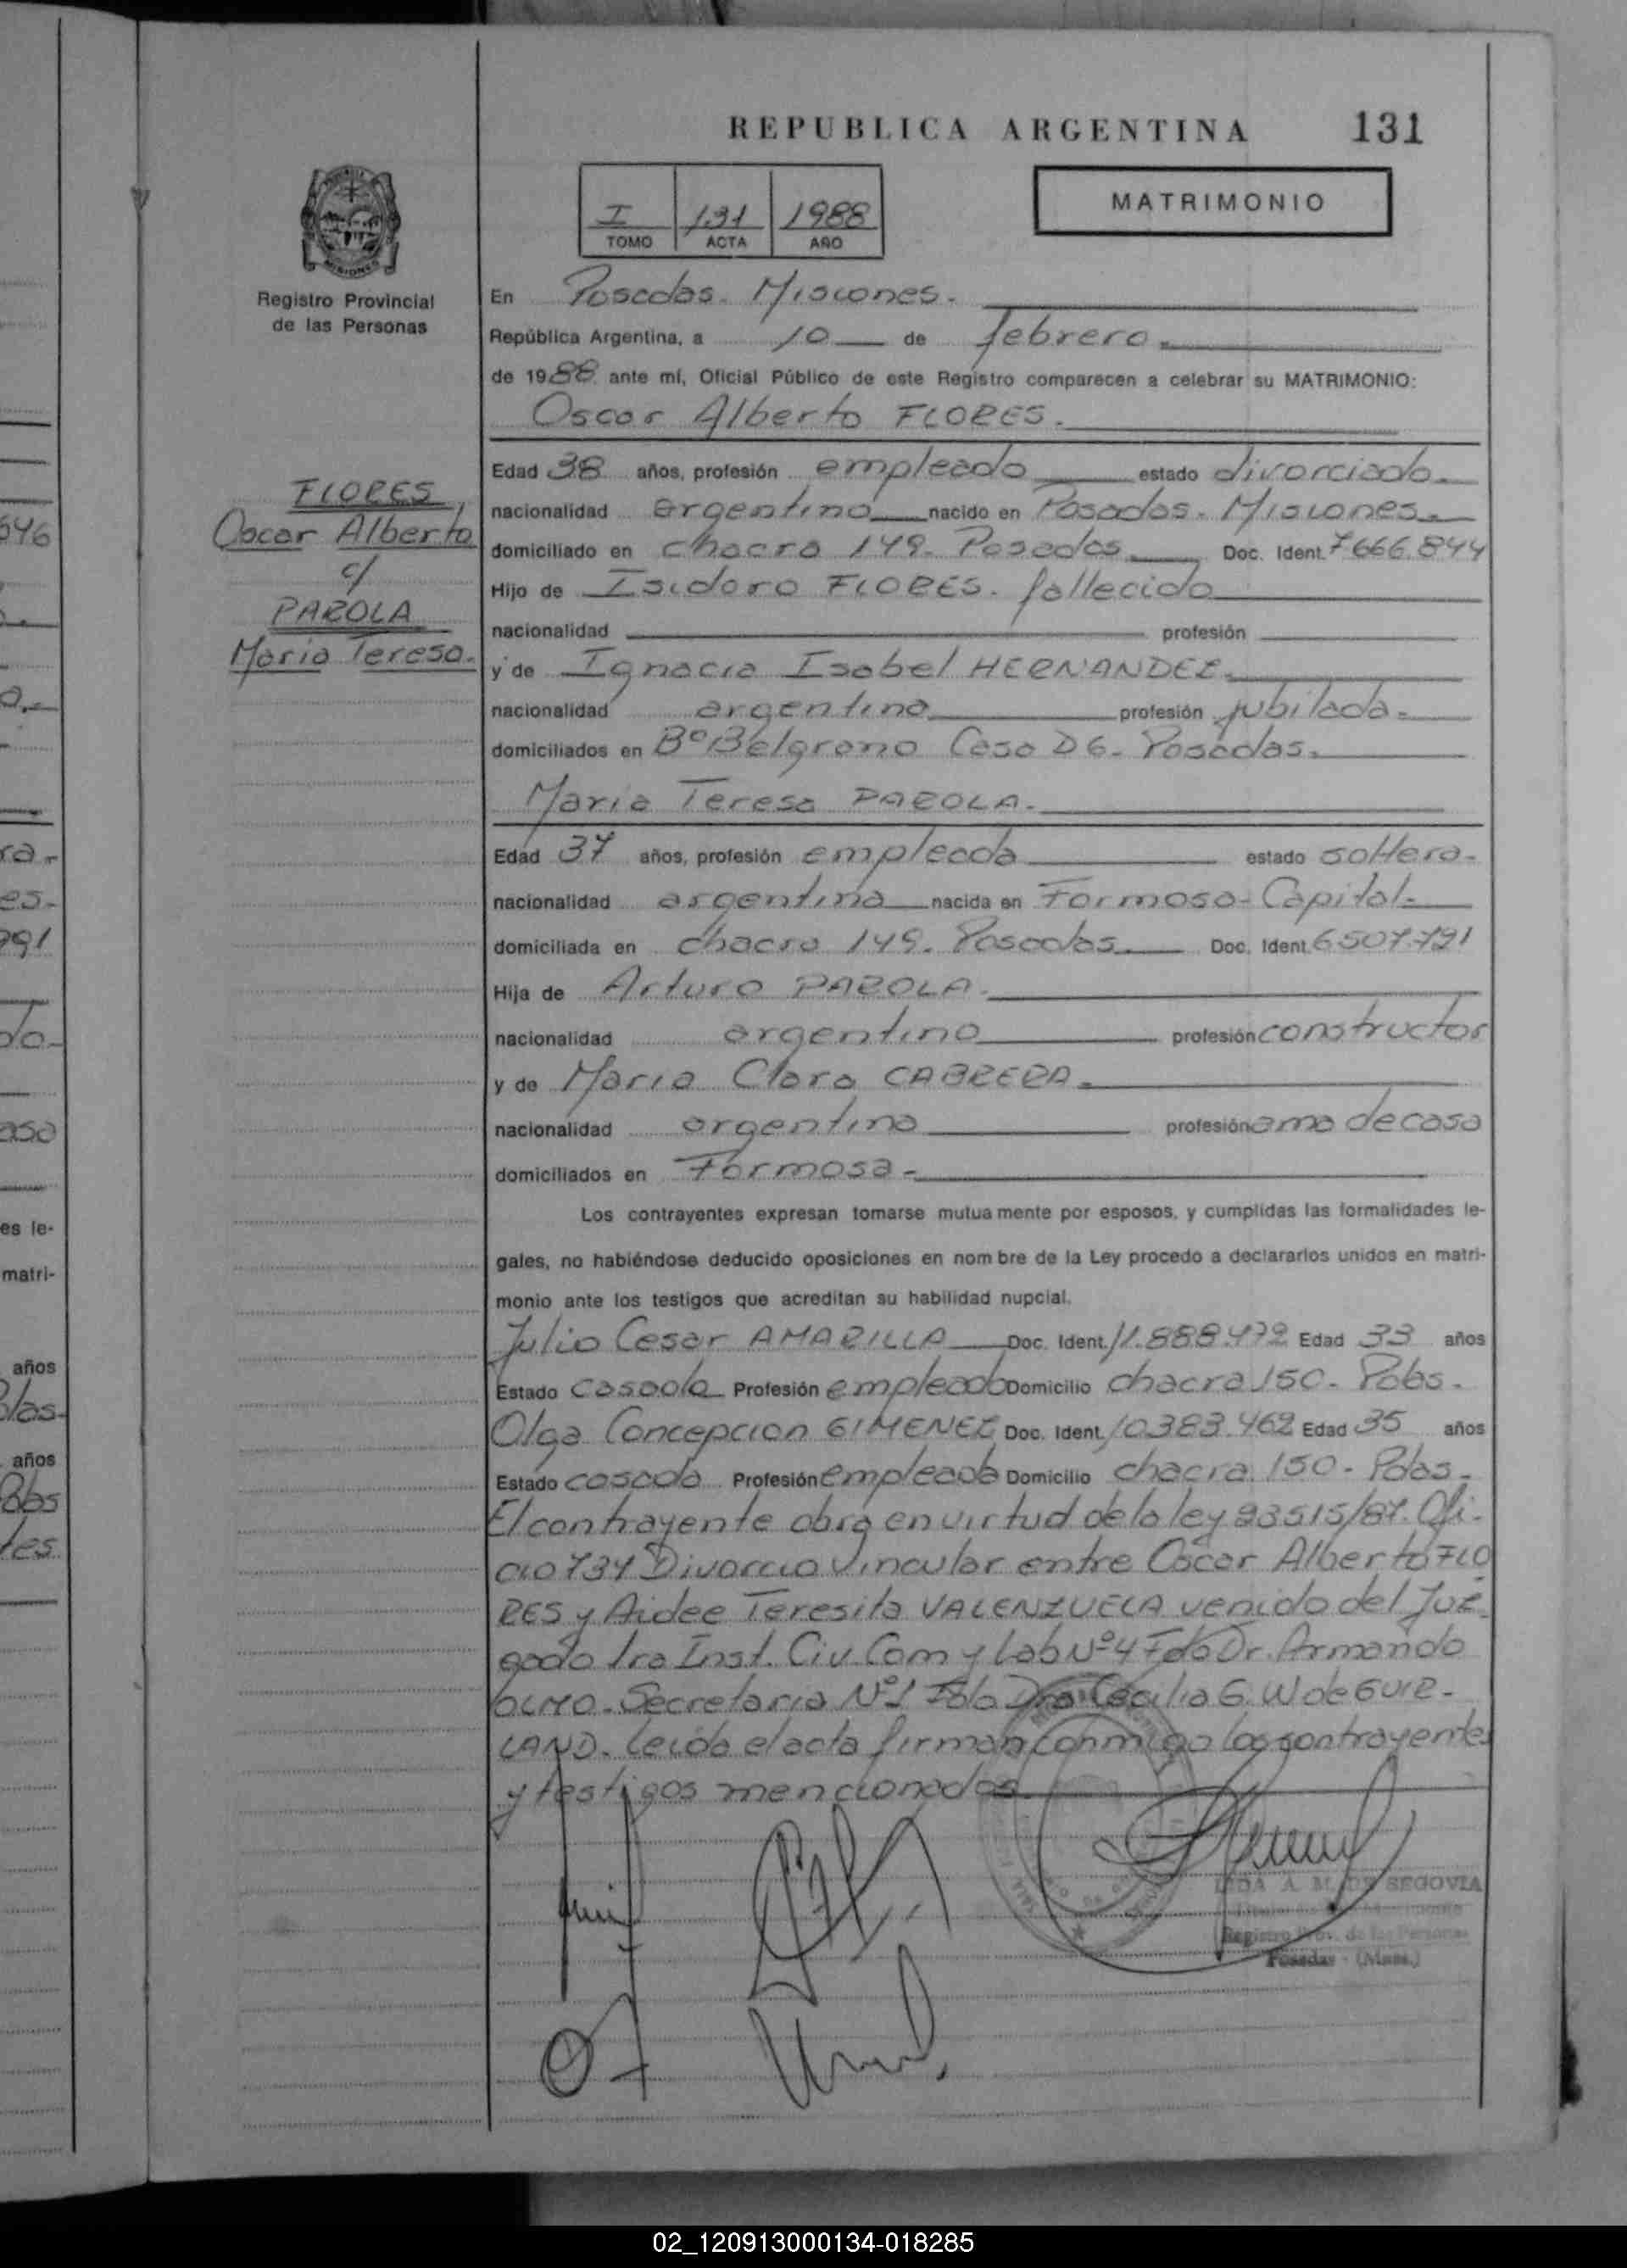 REPUBLICA ARGENTINA 131
MATRIMONIO
I 131 1988
TOMO ACTA AÑO
MISIONES
Registro Provincial
de las Personas
En Posadas. Misiones.
República Argentina, a 10 de febrero.
de 1988 ante mí, Oficial Público de este Registro comparecen a celebrar su MATRIMONIO:
Oscar Alberto FLORES.
FLORES
Oscar Alberto
c/
PAROLA
Maria Teresa.
Edad 38 años, profesión empleado estado divorciado.
nacionalidad argentino nacido en Posadas. Misiones.
domiciliado en chacra 149. Posadas. Doc. Ident. 7.666.844
Hijo de Isidoro FLORES. fallecido
nacionalidad profesión
y de Ignacia Isabel HERNANDEZ.
nacionalidad argentina profesión jubilada.
domiciliados en Bº Belgrano Casa D6. Posadas.
Maria Teresa PAROLA.
Edad 37 años, profesión empleada estado soltera.
nacionalidad argentina nacida en Formosa-Capital.
domiciliada en chacra 149. Posadas. Doc. Ident. 6.507.791
Hija de Arturo PAROLA.
nacionalidad argentino profesión constructor
y de Maria Clara CABRERA.
nacionalidad argentina profesión ama de casa
domiciliados en Formosa.
Los contrayentes expresan tomarse mutuamente por esposos, y cumplidas las formalidades le-
gales, no habiéndose deducido oposiciones en nombre de la Ley procedo a declararlos unidos en matri-
monio ante los testigos que acreditan su habilidad nupcial.
Julio Cesar AMARILLA Doc. Ident. 11.888.472 Edad 33 años
Estado casado Profesión empleado Domicilio chacra 150. Pdas.
Olga Concepcion GIMENEZ Doc. Ident. 10.383.462 Edad 35 años
Estado casada Profesión empleada Domicilio chacra 150. Pdas.
El contrayente obra en virtud de la ley 23515/87. Ofi-
cio 734 Divorcio vincular entre Oscar Alberto FLO
RES y Aidee Teresita VALENZUELA venido del Juz-
gado 1ra Inst. Civ. Com y Lab Nº 4 Fdo Dr. Armando
OLMO. Secretaria Nº 1 Fdo Dra Cecilia G. W de GUIR-
LAND. Leida el acta firman conmigo los contrayentes
y testigos mencionados.
LIDA A. M. DE SEGOVIA
Registro Prov. de las Personas
Posadas - (Mnes.)
646
791
aso
es le-
matri-
años
años
02_120913000134-018285